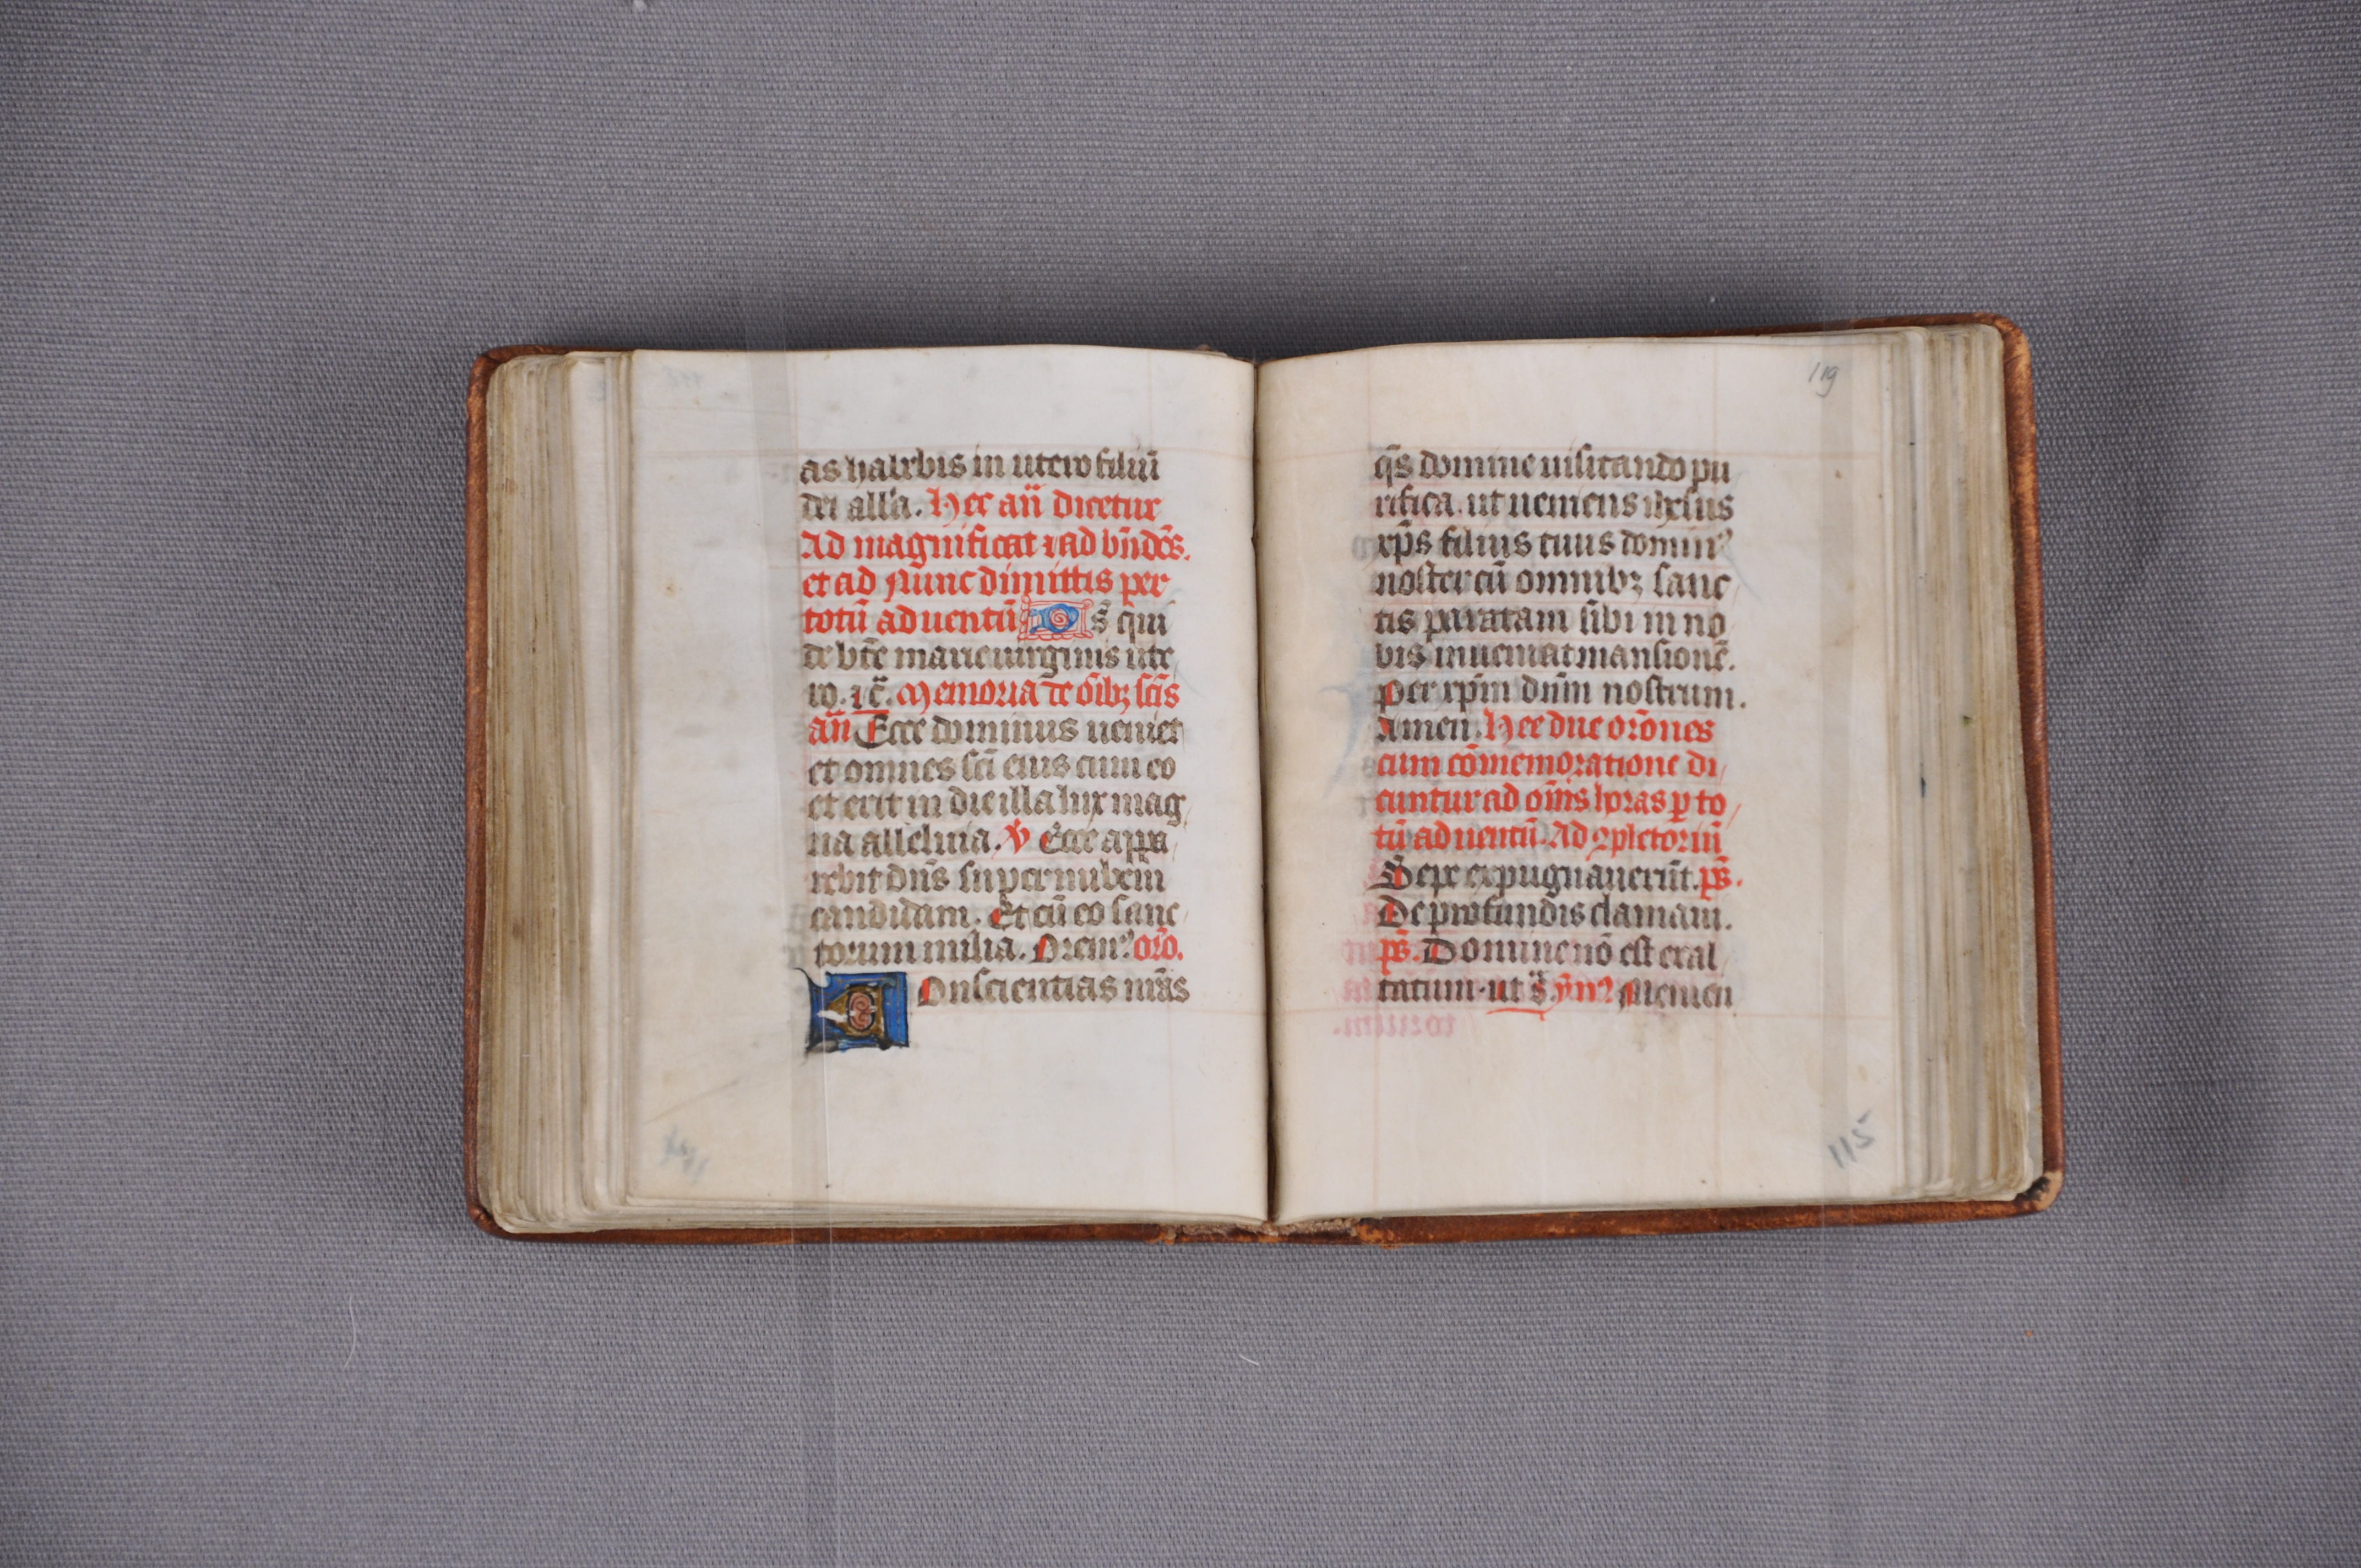 as habebis in utero filiū
dei alla. Hec añ dicetur
Ad magnificat ⁊ ad bn̄dc̄s.
et ad Nunc dimittis per
totū aduentū Ds̄ qui
de bt̄e marie uirginis ute
ro. ⁊c̄. Memoria de oīb⁊ sc̄is
añ Ecce dominus ueniet
et omnes sc̄i eius cum eo
et erit in die illa lux mag
na alleluia. V̇ Ecce appa
rebit dn̄s super nubem
candidam. Et cū eo sanc
torum milia. Orem⁹ or̄o.
Conscientias nr̄as
119
qs̄ domine uisitando pu
rifica. ut ueniens ihesus
xp̄s filius tuus domin⁹
noster cū omnib⁊ sanc
tis paratam sibi in no
bis inueniat mansionē.
Per xp̄m dn̄m nostrum.
Amen. Hee due or̄ones
cum cōmemoratione di
cuntur ad om̄s horas ꝑ to
tū aduentū. Ad ꝯpletoriū
Sepe expugnauerūt. ps̄.
De profundis clamaui.
ps̄. Domine nō est exal
tatum. ut s̄. ym⁹ Memen
115